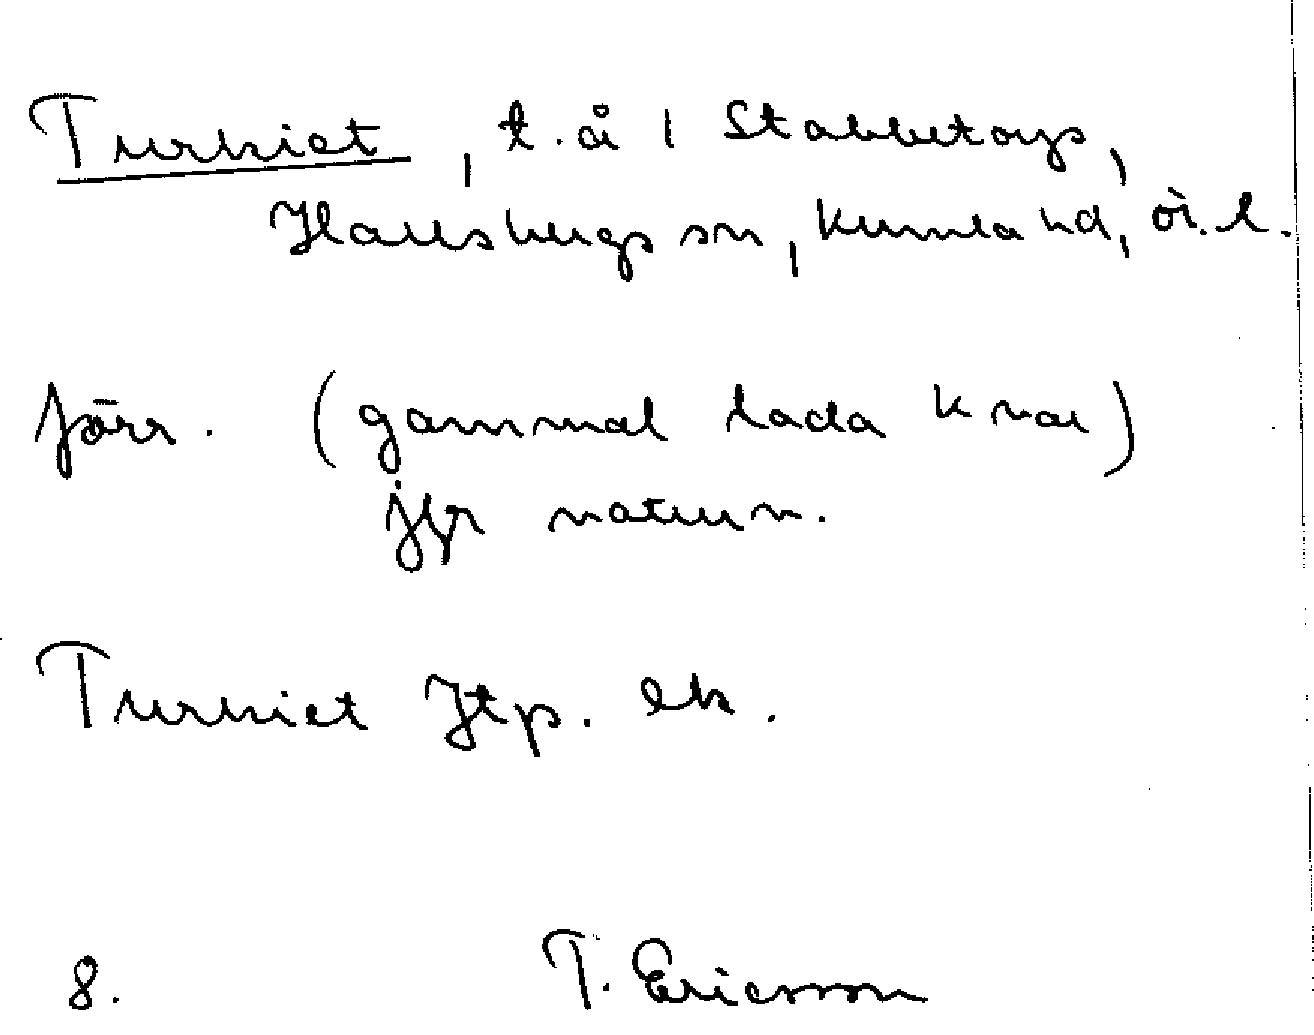 Turkiet, t.å i Stabbetorp,
Hallsbergs sn, Kumla hd, ör. l.
förr. (gammal lada kvar)
jfr naturn.
Turkiet Jtp. ek.
8. T. Ericsson